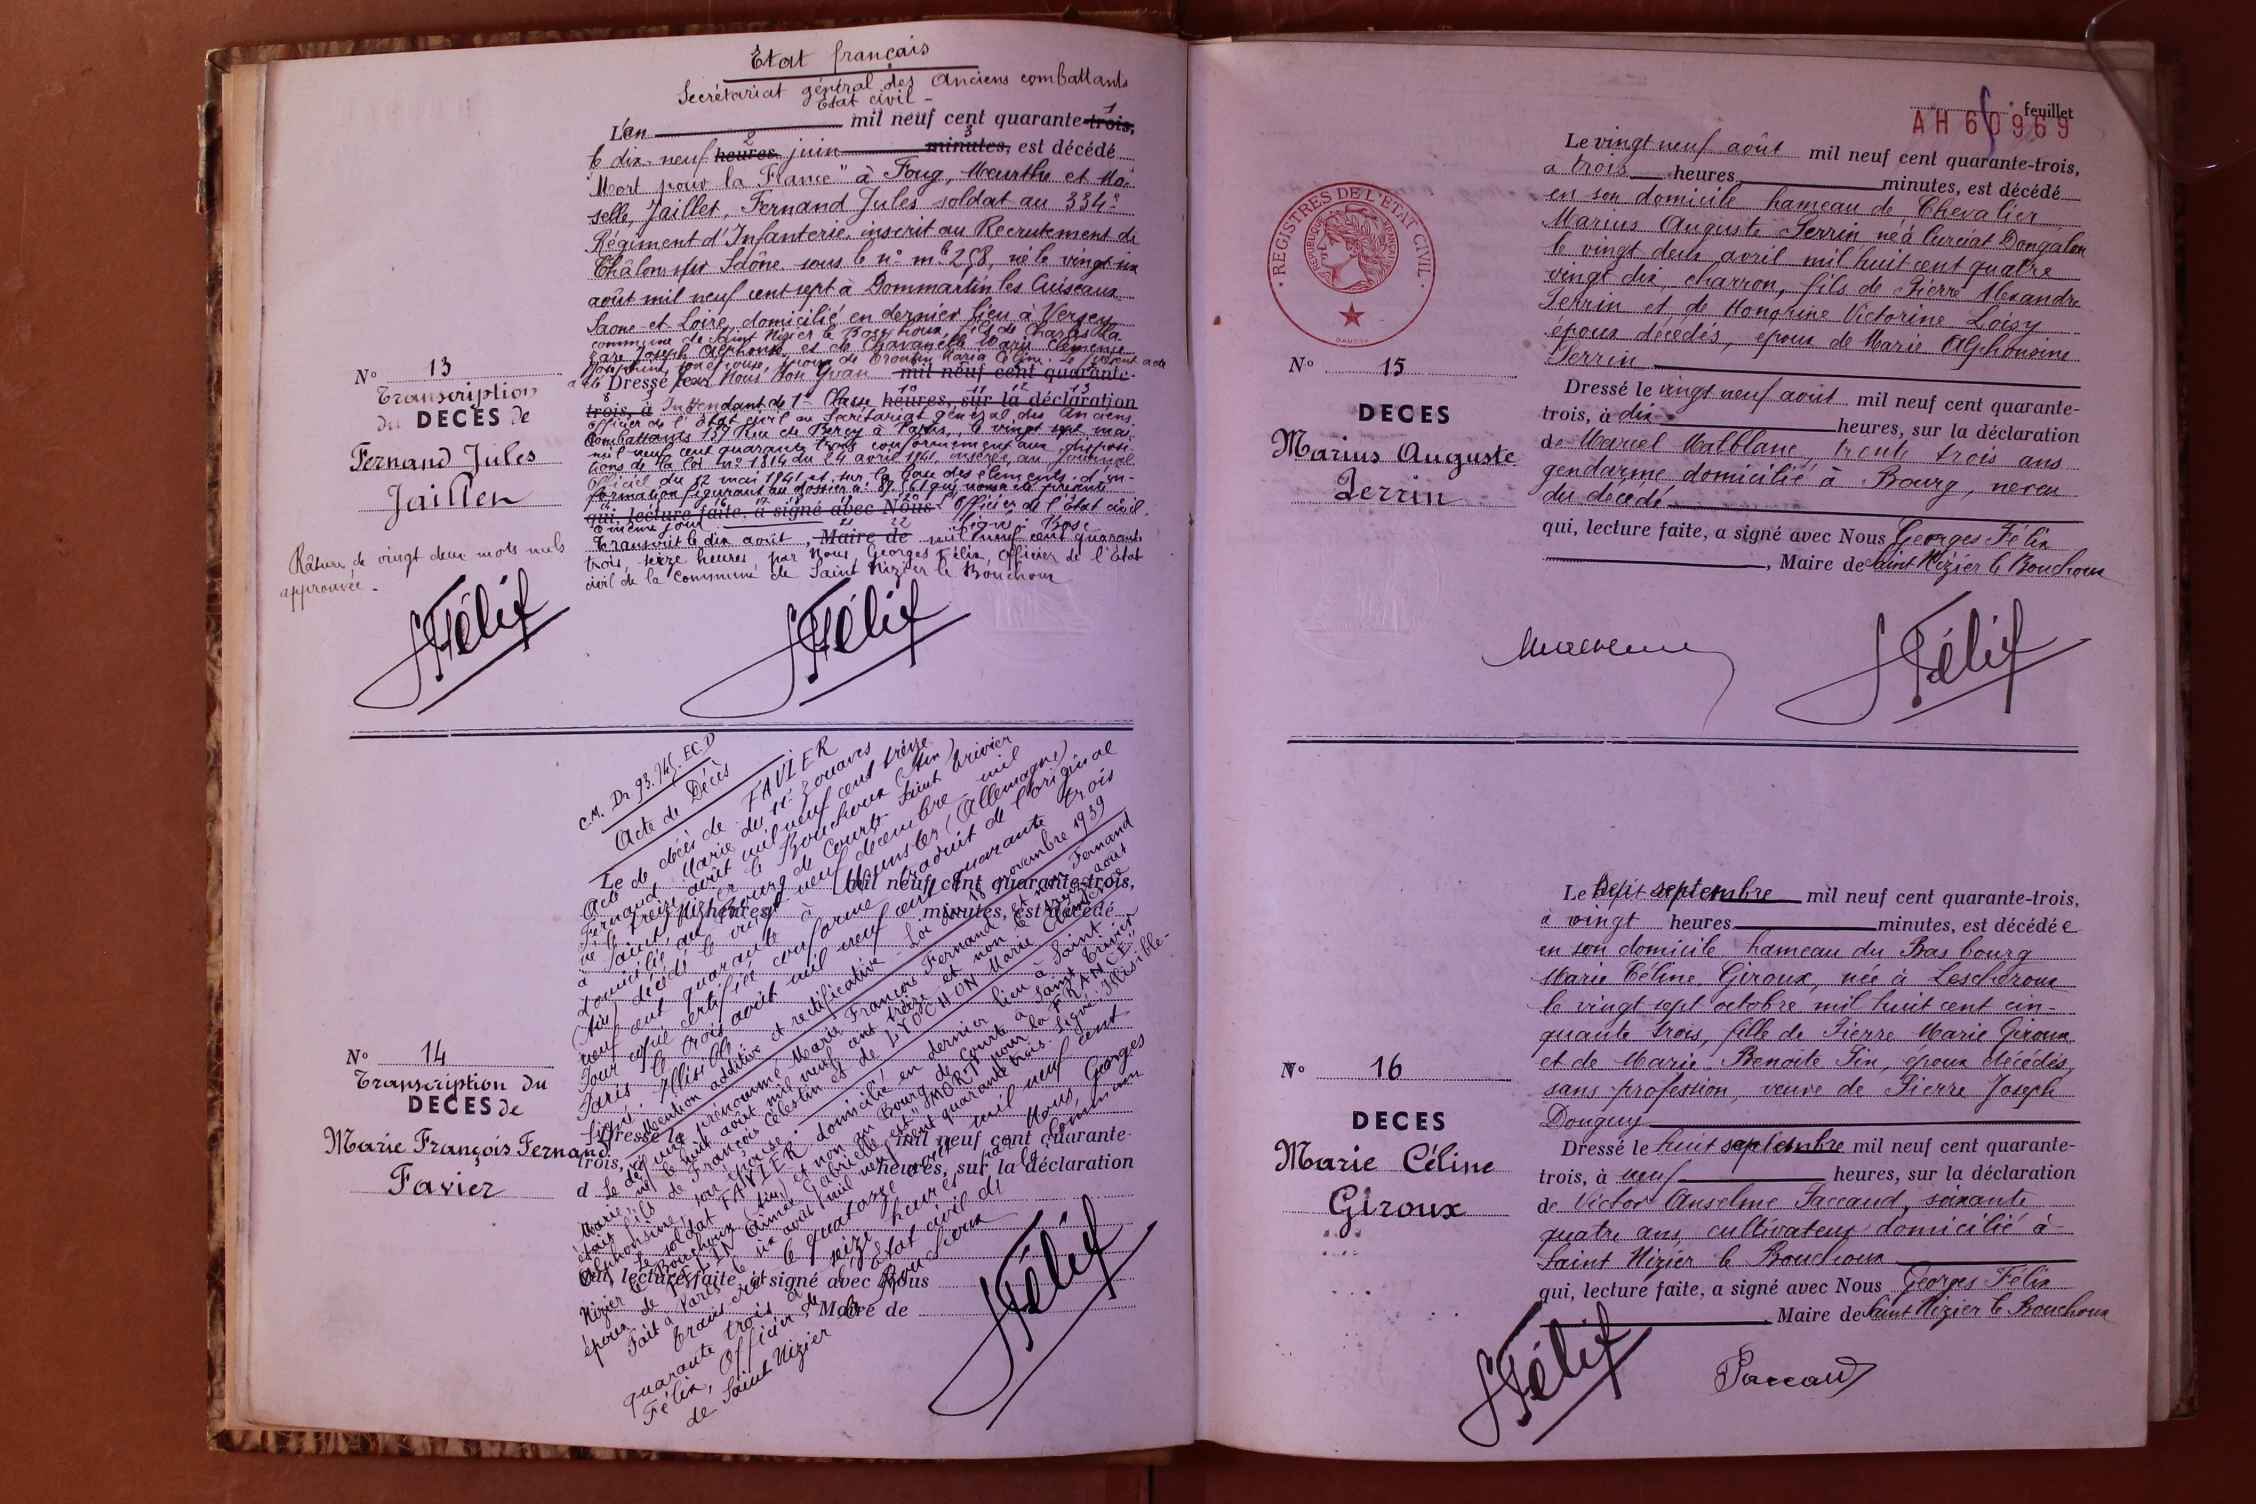 Etat français
Secrétariat général des Anciens combattants
Etat civil -
L'an mil neuf cent quarante-trois, 1
le dix-neuf heures 2 juin minutes, 3 est décédé
"Mort pour la France" à Foug, Meurthe et Mo-
selle, Jaillet, Fernand Jules soldat au 334e
Régiment d'Infanterie inscrit au Recrutement de
Châlon sur Saône sous le n° mle 258, né le vingt six
août mil neuf cent sept à Dommartin les Cuiseaux
Saone-et Loire, domicilié en dernier lieu à Versey
commune de Saint Nizier le Bouchoux, fils de Charles
Joseph Alphonse, et de Marie Clémence
époux de Maria Céline. Le présent acte
a été Dressé par Nous Yvan mil neuf cent quarante-
trois, à Intendant de 1re Classe heures, sur la déclaration
officier de l'Etat civil au Secrétariat général des Anciens
Combattants 139 Rue de Bercy à Paris, le vingt sept mai
mil neuf cent quarante trois conformément aux disposi-
tions de la loi n° 1814 du 24 avril 1941 insérée au Journal
Officiel du 22 mai 1941 et sur la base des éléments d'in-
formation figurant au dossier n°
qui, lecture faite, a signé avec Nous l'Officier de l'Etat civil.
même jour Signé: Bosc
Transcrit le dix août, Maire de mil neuf cent quarante
trois, seize heures par Nous, Georges Félix, Officier de l'Etat
civil de la Commune de Saint Nizier le Bouchoux
N° 13
Transcription
du DECES de
Fernand Jules
Jaillet
Rature de vingt deux mots nuls
approuvée.
GFélix
GFélix
C.M. Dr 93.745. EC.D
Acte de Décès
Le
Acte de décès de FAVIER
Fernand Marie du 11e zouaves
né le treize août mil neuf cent treize
à Saint Nizier le Bouchoux (Ain)
domicilié au Bourg de Courtes Saint Trivier
(Ain) décédé le vingt neuf décembre mil
neuf cent quarante à Munster (Allemagne)
Pour copie certifiée conforme traduit de l'original
Paris le trois août mil neuf cent quarante trois
Signé: Illisible
Mention additive et rectificative Loi du 18 novembre 1939
mil neuf cent quarante-trois,
heures minutes, est décédé
Le de cujus prénommé Marie François Fernand et non Fernand
Marie, né le huit août mil neuf cent treize et non le treize août
était fils de François Célestin et de LYOCHON Marie Clémence
Alphonsine, son épouse.
Le soldat FAVIER domicilié en dernier lieu à Saint
Nizier le Bouchoux (Ain) et non au Bourg de Courtes à Saint Trivier
époux de Aimée Gabrielle est "MORT pour la FRANCE"
Fait à Paris, le six août mil neuf cent quarante trois. Signé: Illisible-
Transcrit le quatorze août mil neuf cent
quarante trois à seize heures par Nous, Georges
Félix, Officier de l'Etat civil de la Commune
de Saint Nizier le Bouchoux
Dressé le mil neuf cent quarante-
trois, à heures, sur la déclaration
d
qui, lecture faite, a signé avec Nous
, Maire de
N° 14
Transcription du
DECES de
Marie François Fernand
Favier
GFélix
feuillet
AH 60969
REGISTRES DE L'ETAT CIVIL
Le vingt neuf août mil neuf cent quarante-trois,
a trois heures minutes, est décédé
en son domicile hameau de Chevalier
Marius Auguste Perrin né à Curciat Dongalon
le vingt deux avril mil huit cent quatre
vingt dix, charron, fils de Pierre Alexandre
Perrin et de Honorine Victorine Loisy
époux décédés, époux de Marie Alphonsine
Perrin
Dressé le vingt neuf août mil neuf cent quarante-
trois, à dix heures, sur la déclaration
de Marcel Malblanc, trente trois ans
gendarme domicilié à Bourg, neveu
du décédé
qui, lecture faite, a signé avec Nous Georges Félix
, Maire de Saint Nizier le Bouchoux
N° 15
DECES
Marius Auguste
Perrin
GFélix
Le sept septembre mil neuf cent quarante-trois,
à vingt heures minutes, est décédée
en son domicile hameau du Bas bourg
Marie Céline Giroux, née à Lescheroux
le vingt sept octobre mil huit cent cin-
quante trois, fille de Pierre Marie Giroux
et de Marie Benoite Pin, époux décédés,
sans profession, veuve de Pierre Joseph
Donguy
Dressé le huit septembre mil neuf cent quarante-
trois, à neuf heures, sur la déclaration
de Victor Anselme Paccaud, soixante
quatre ans, cultivateur domicilié à
Saint Nizier le Bouchoux
qui, lecture faite, a signé avec Nous Georges Félix
Maire de Saint Nizier le Bouchoux
N° 16
DECES
Marie Céline
Giroux
GFélix
Paccaud